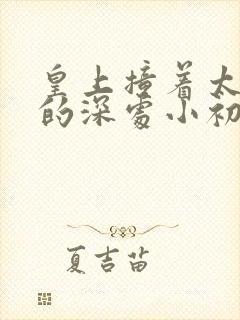 皇上撞着太
的深处小初
夏吉苗